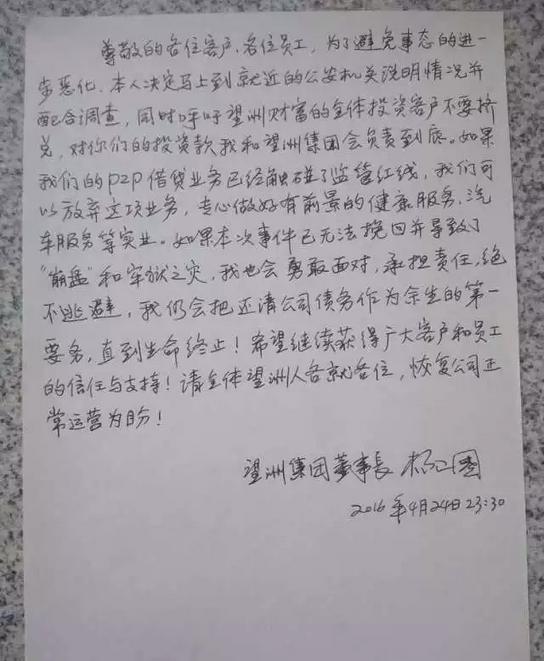 尊敬的各位客户、各位员工，为了避免事态的进一
步恶化，本人决定马上到就近的公安机关说明情况并
配合调查，同时呼吁望洲财富的全体投资客户不要挤
兑，对你们的投资款我和望洲集团会负责到底。如果
我们的P2P借贷业务已经触碰了监管红线，我们可
以放弃这项业务，专心做好有前景的健康服务、汽
车服务等实业。如果本次事件已无法挽回并导致了
“崩盘”和牢狱之灾，我也会勇敢面对，承担责任，绝
不逃避，我仍会把还清公司债务作为余生的第一
要务，直到生命终止！希望继续获得广大客户和员工
的信任与支持！请全体望洲人各就各位，恢复公司正
常运营为盼！
望洲集团董事長 杨卫国
2016年4月24日23:30